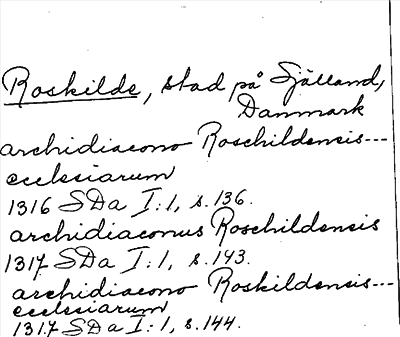 Roskilde, stad på Själland,
Danmark
archidiacono Roschildensis---
ecclesiarum
1316 SDa I:1, s.136.
archidiaconus Roschildensis
1317 SDa I:1, s.143.
archidiacono Roskildensis---
ecclesiarum
1317 SDa I:1, s.144.